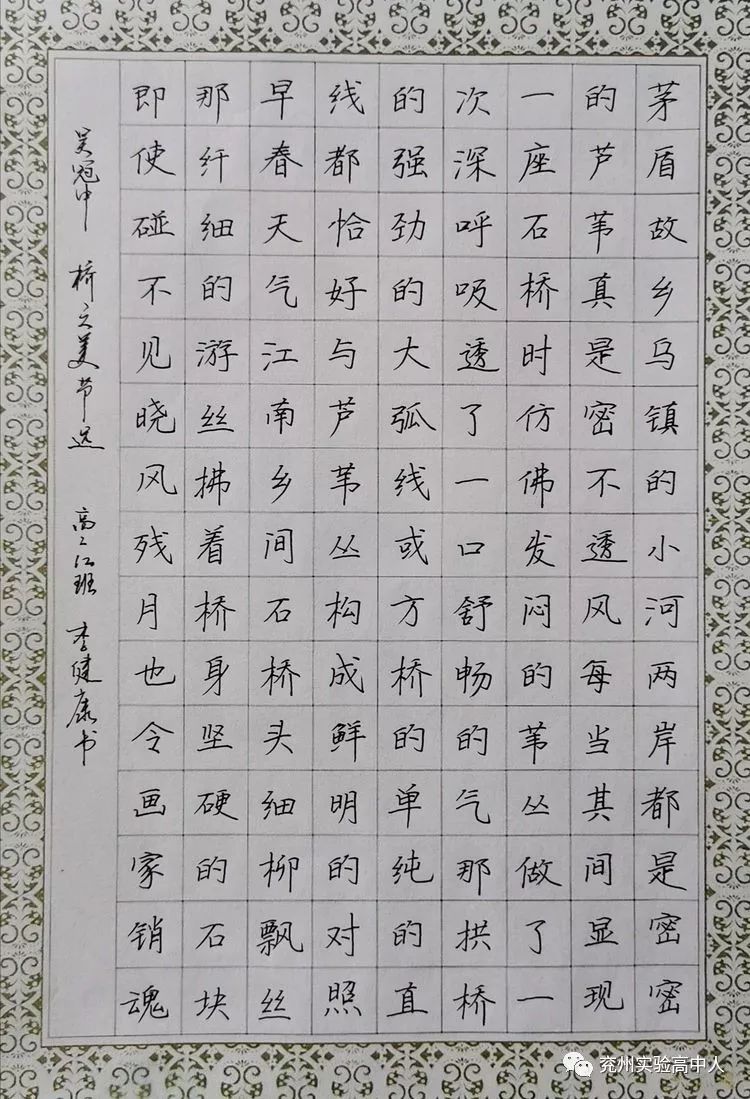 茅盾故乡乌镇的小河两岸都是密密
的芦苇真是密不透风每当其间显现
一座石桥时仿佛发闷的苇丛做了一
次深呼吸透了一口舒畅的气那拱桥
的强劲的大弧线或方桥的单纯的直
线都恰好与芦苇丛构成鲜明的对照
早春天气江南乡间石桥头细柳飘丝
那纤细的游丝拂着桥身坚硬的石块
即使碰不见晓风残月也令画家销魂
吴冠中 桥之美节选 高二江班 李健康书
兖州实验高中人